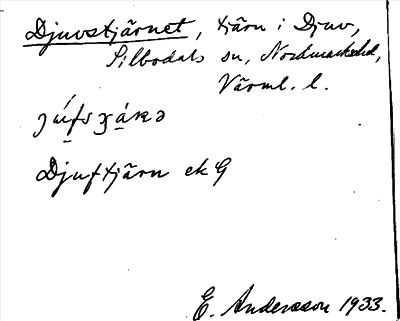 Djuvstjärnet, tjärn i Djuv,
Silbodals sn, Nordmarks hd,
Värml. l.
Djuftjärn ek G
E. Andersson 1933.